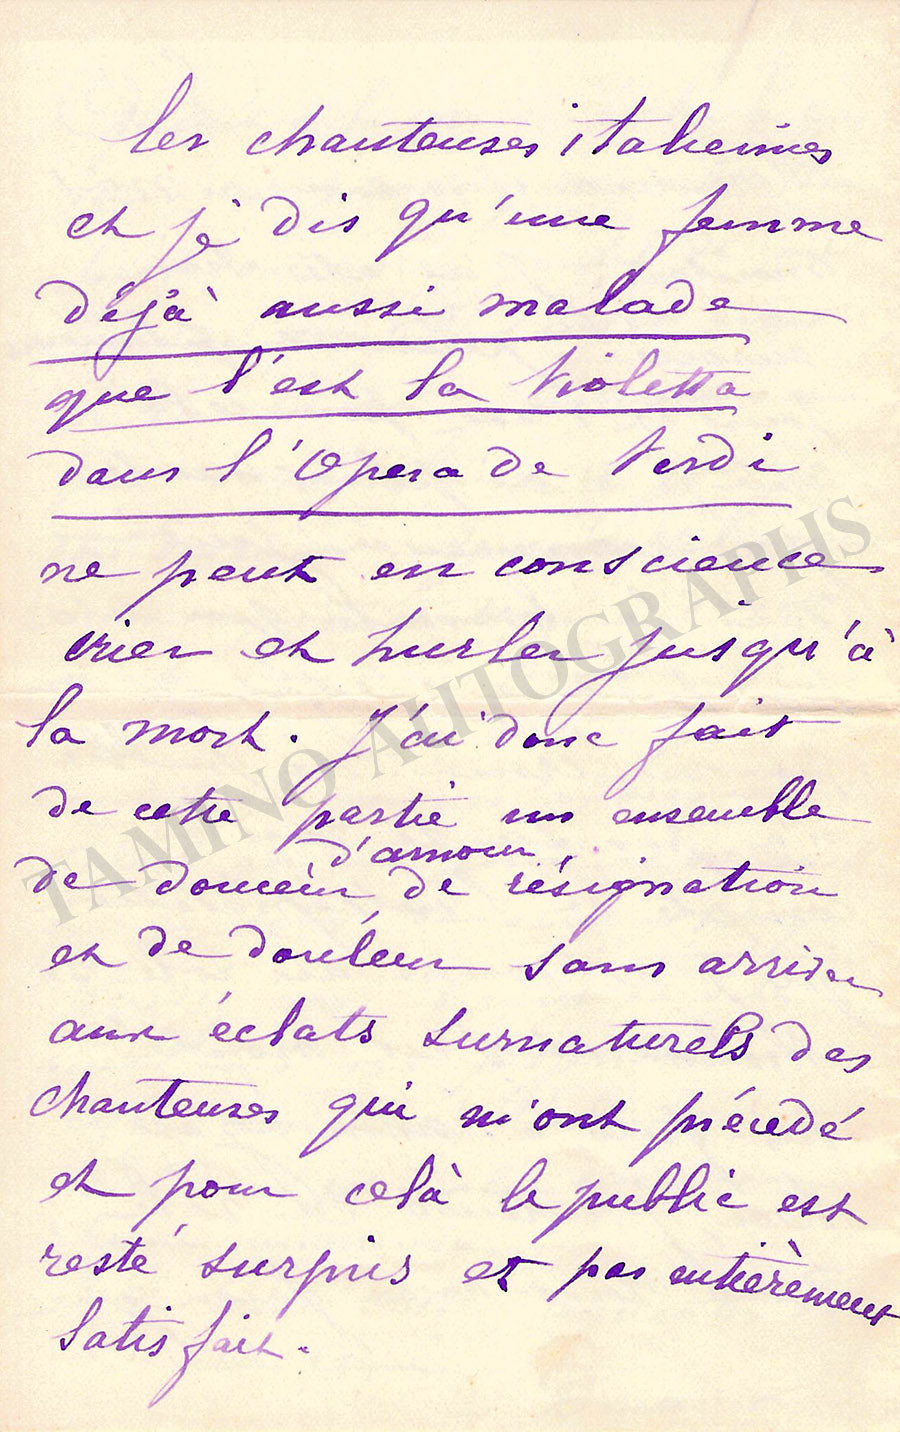 les chanteuses italiennes
et je dis qu'une femme
déjà aussi malade
que l'est la Violetta
dans l'Opera de Verdi
ne peut en conscience
crier et hurler jusqu'à
la mort. J'ai donc fait
de cette partie un ensemble
d'amour
de douceur de résignation
et de douleur sans arriver
aux éclats surnaturels des
chanteuses qui m'ont précédé
et pour celà le public est
resté surpris et pas entièrement
satisfait.
TAMINO AUTOGRAPHS